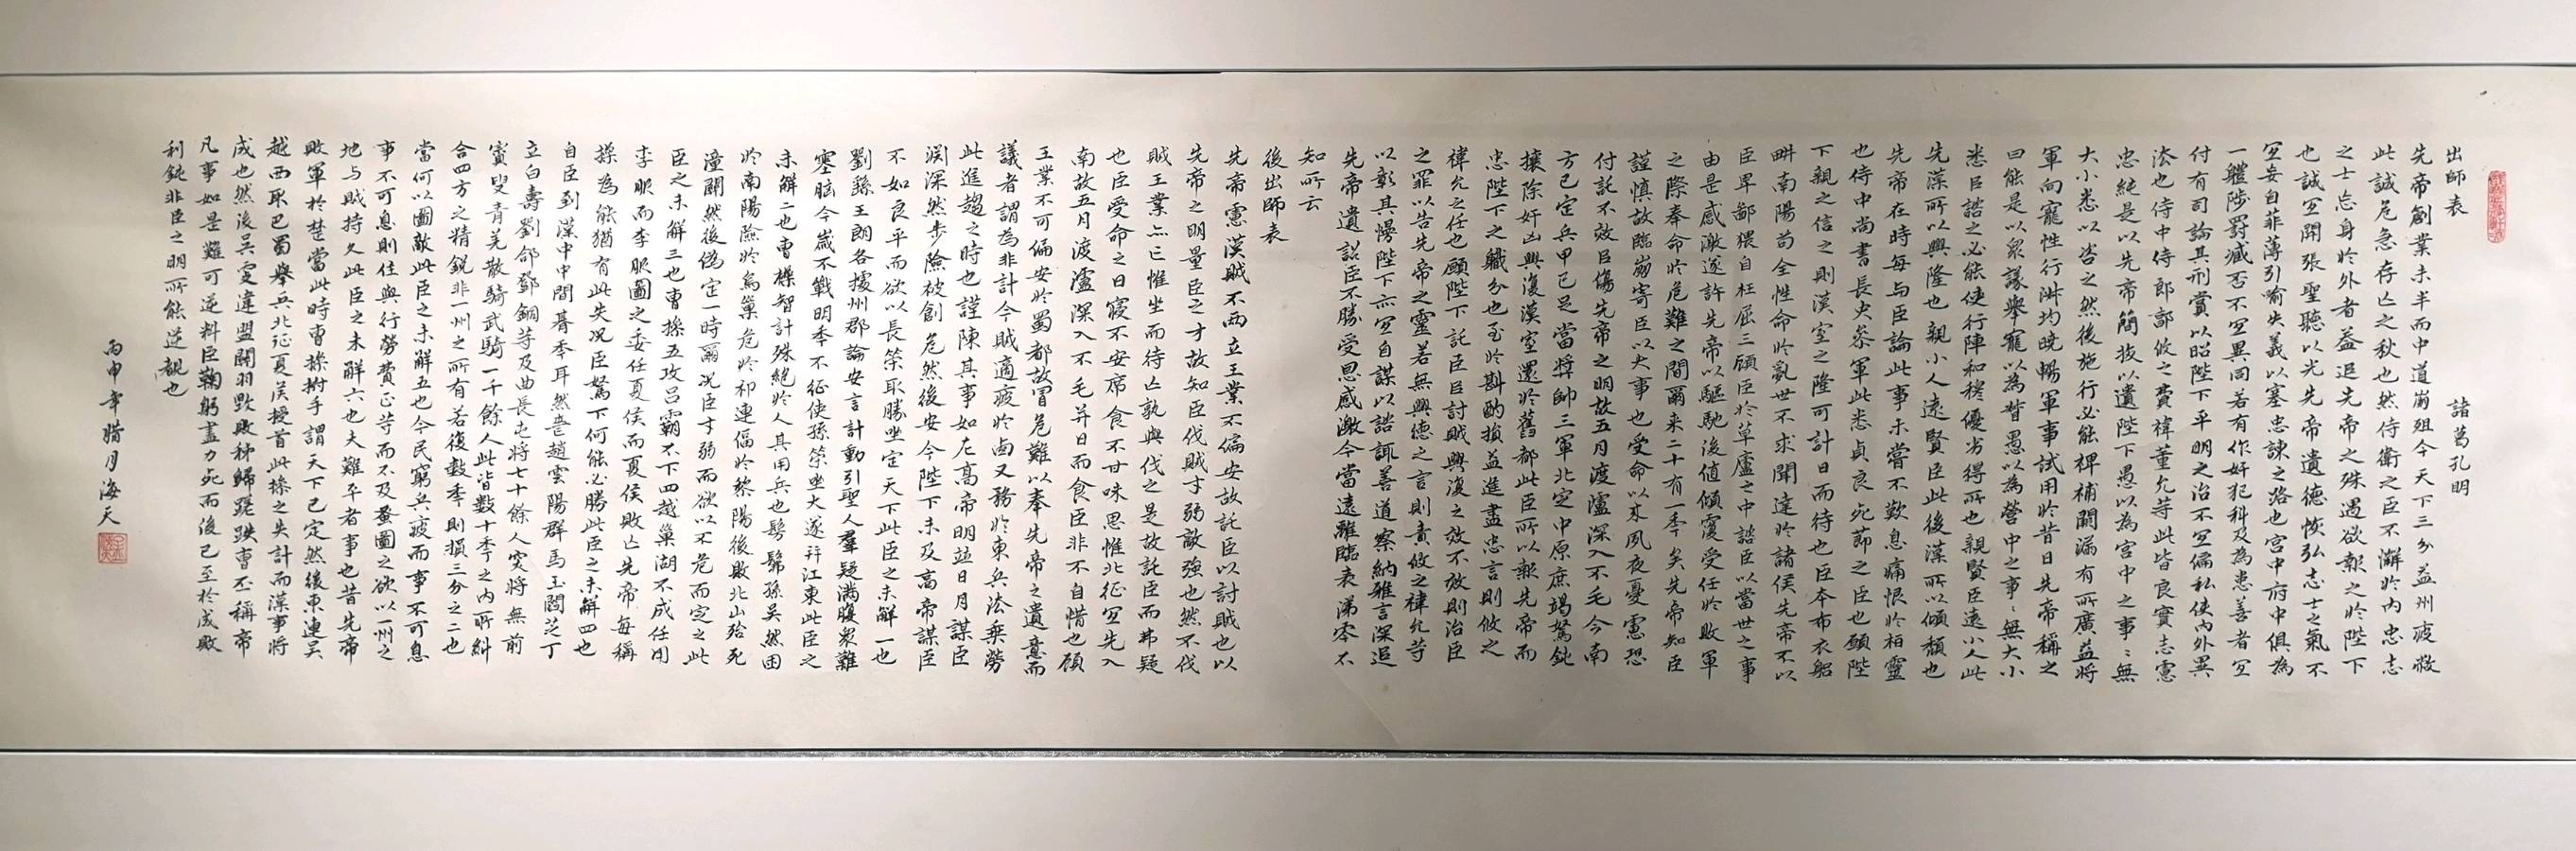 出師表 諸葛孔明
先帝創業未半而中道崩殂今天下三分益州疲敝
此誠危急存亡之秋也然侍衛之臣不懈於內忠志
之士忘身於外者益追先帝之殊遇欲報之於陛下
也誠宜開張聖聽以光先帝遺德恢弘志士之氣不
宜妄自菲薄引喻失義以塞忠諫之路也宮中府中俱為
一體陟罰臧否不宜異同若有作奸犯科及為忠善者宜
付有司論其刑賞以昭陛下平明之治不宜偏私使內外異
法也侍中侍郎郭攸之費禕董允等此皆良實志慮
忠純是以先帝簡拔以遺陛下愚以為宮中之事〻無
大小悉以咨之然後施行必能裨補闕漏有所廣益將
軍向寵性行淑均曉暢軍事試用於昔日先帝稱之
曰能是以眾議舉寵以為督愚以為營中之事〻無大小
悉以諮之必能使行陣和穆優劣得所也親賢臣遠小人此
先漢所以興隆也親小人遠賢臣此後漢所以傾頹也
先帝在時每与臣論此事未嘗不歎息痛恨於桓靈
也侍中尚書長史參軍此悉貞良死節之臣也願陛
下親之信之則漢室之隆可計日而待也臣本布衣躬
畊南陽苟全性命於亂世不求聞達於諸侯先帝不以
臣卑鄙猥自枉屈三顧臣於草廬之中諮臣以當世之事
由是感激遂許先帝以驅馳後值傾覆受任於敗軍
之際奉命於危難之間爾来二十有一年矣先帝知臣
謹慎故臨崩寄臣以大事也受命以來夙夜憂慮恐
付託不效以傷先帝之明故五月渡瀘深入不毛今南
方已定兵甲已足當獎帥三軍北定中原庶竭駑鈍
攘除奸凶興復漢室還於舊都此臣所以報先帝而
忠陛下之職分也至於斟酌損益進盡忠言則攸之
禕允之任也願陛下託臣以討賊興復之效不效則治臣
之罪以告先帝之靈若無興德之言則責攸之禕允等
以彰其慢陛下亦宜自謀以諮諏善道察納雅言深追
先帝遺詔臣不勝受恩感激今當遠離臨表涕零不
知所云
後出師表
先帝慮漢賊不兩立王業不偏安故託臣以討賊也以
先帝之明量臣之才故知臣伐賊才弱敵強也然不伐
賊王業亦亡惟坐而待亡孰與伐之是故託臣而弗疑
也臣受命之日寢不安席食不甘味思惟北征宜先入
南故五月渡瀘深入不毛并日而食臣非不自惜也顧
王業不可偏安於蜀都故冒危難以奉先帝之遺意而
議者謂為非計今賊適疲於西又務於東兵法乘勞
此進趨之時也謹陳其事如左高帝明並日月謀臣
淵深然涉險被創危然後安今陛下未及高帝謀臣
不如良平而欲以長策取勝坐定天下此臣之未解一也
劉繇王朗各據州郡論安言計動引聖人羣疑滿腹眾難
塞胸今歲不戰明年不征使孫策坐大遂并江東此臣之
未解二也曹操智計殊絕於人其用兵也髣髴孫吳然困
於南陽險於烏巢危於祁連偪於黎陽後敗北山殆死
潼關然後偽定一時爾況臣才弱而欲以不危而定之此
臣之未解三也曹操五攻昌霸不下四越巢湖不成任用
李服而李服圖之委任夏侯而夏侯敗亡先帝每稱
操為能猶有此失況臣駑下何能必勝此臣之未解四也
自臣到漢中中間朞年耳然喪趙雲陽群馬玉閻芝丁
立白壽劉郃鄧銅等及曲長屯將七十餘人突將無前
賨叟青羌散騎武騎一千餘人此皆數十年之內所糾
合四方之精銳非一州之所有若復數年則損三分之二也
當何以圖敵此臣之未解五也今民窮兵疲而事不可息
事不可息則住與行勞費正等而不及蚤圖之欲以一州之
地与賊持久此臣之未解六也夫難平者事也昔先帝
敗軍於楚當此時曹操拊手謂天下已定然後東連吳
越西取巴蜀舉兵北征夏侯授首此操之失計而漢事將
成也然後吳更違盟關羽毀敗秭歸蹉跌曹丕稱帝
凡事如是難可逆料臣鞠躬盡力死而後已至於成敗
利鈍非臣之明所能逆覩也
丙申年臘月海天